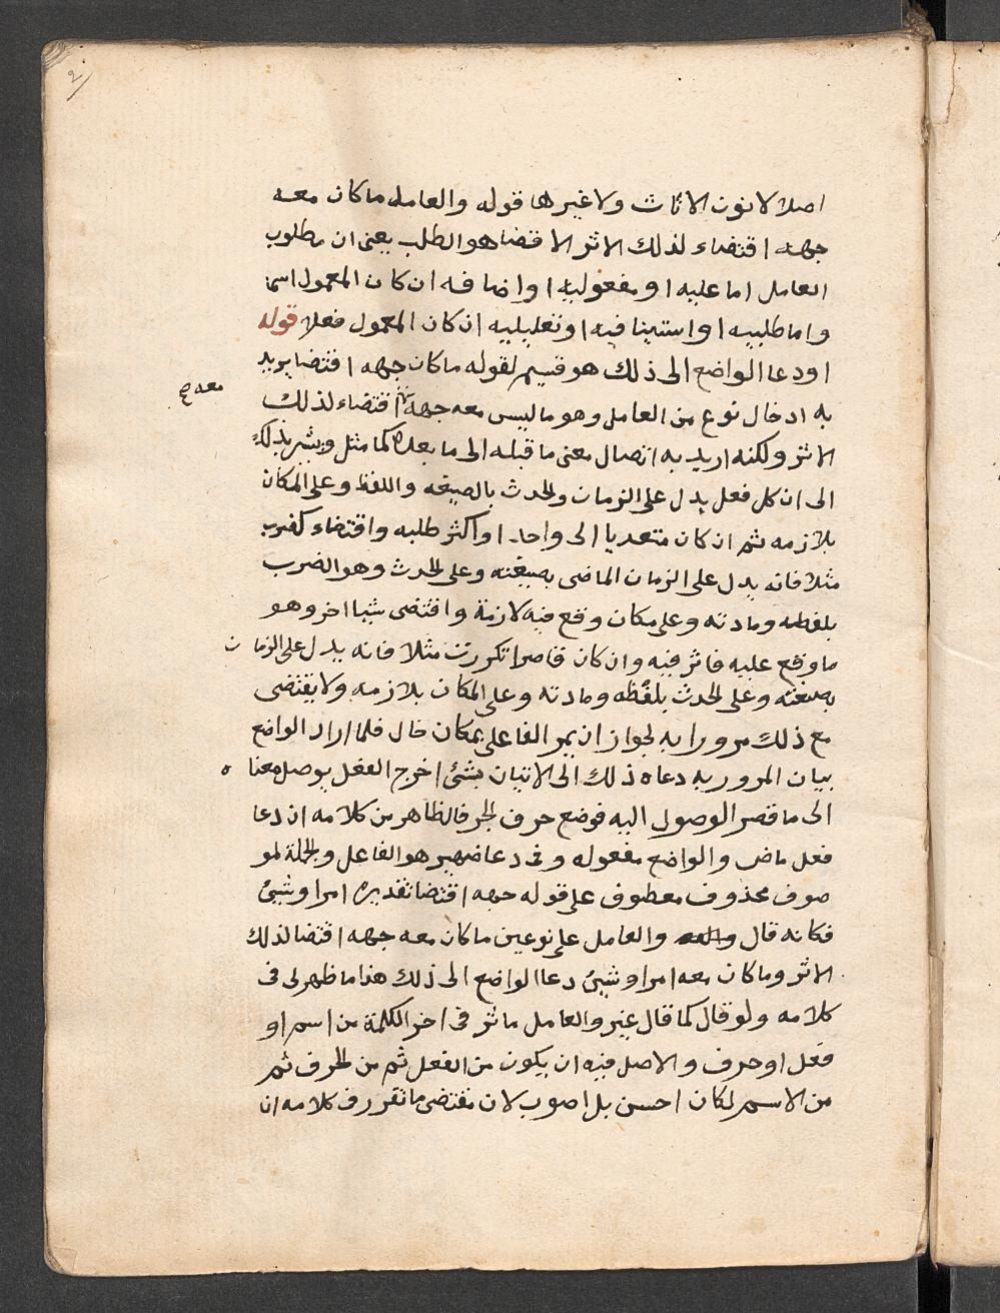 2
اصلا لا نون الاناث ولا غيرها قوله والعامل ما كان معه
جهة اقتضاء لذلك الاثر الا قضا هو الطلب يعنى ان مطلوب
العامل اما عليه او مفعوليه او اضافه ان كان المعمول اسما
واما طلبيه او استينافيه او تعليليه ان كان المعمول فعلا قوله
او دعا الواضع الى ذلك هو قسيم لقوله ما كان جهه اقتضا يريد
معه صح
به ادخال نوع من العامل وهو ما ليس معه جهة اقتضاء لذلك
الاثر ولكنه اريد به اتصال معنى ما قبله الى ما بعده كما مثل ويشير بذلك
الى ان كل فعل يدل على الزمان والحدث بالصيغه واللفظ وعلى المكان
بلازمه ثم ان كان متعديا الى واحد او اكثر طلبه واقتضاء كضرب
مثلا فانه يدل على الزمان الماضى بصيغته وعلى الحدث وهو الضرب
بلفظه ومادته وعلى مكان وقع فيه لازمة واقتضى شيا اخر وهو
ما وقع عليه فاثر فيه وان كان قاصرا تكررت مثلا فانه يدل على الزمان
بصيغته وعلى الحدث بلفظه ومادته وعلى المكان بلازمه ولا يقتضى
مع ذلك مرورا به لجواز ان يمر الفاعل بمكان خال فلما اراد الواضع
بيان المرور به دعاه ذلك الى الاتيان بشئ اخرج الفعل يوصل معناه
الى ما قصر الوصول اليه فوضع حرف الجر فالظاهر من كلامه ان دعا
فعل ماض والواضع مفعوله وفى دعا ضمير هو الفاعل والجملة لمو
صوف محذوف معطوف على قوله جهه اقتضا تقديره امرا وشئ
فكانه قال والعامل على نوعين ما كان معه جهه اقتضا لذلك
الاثر وما كان معه امرا وشئ دعا الواضع الى ذلك هذا ما ظهر لى فى
كلامه ولو قال كما قال غير والعامل ما ثر فى اخر الكلمة من اسم او
فعل او حرف والاصل فيه ان يكون من الفعل ثم من الحرف ثم
من الاسم لكان احسن بل اصوب لان مقتضى ما تقرر فى كلامه ان